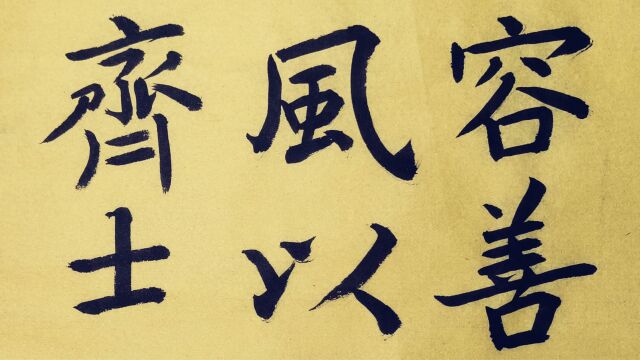 容善
風以
齊士